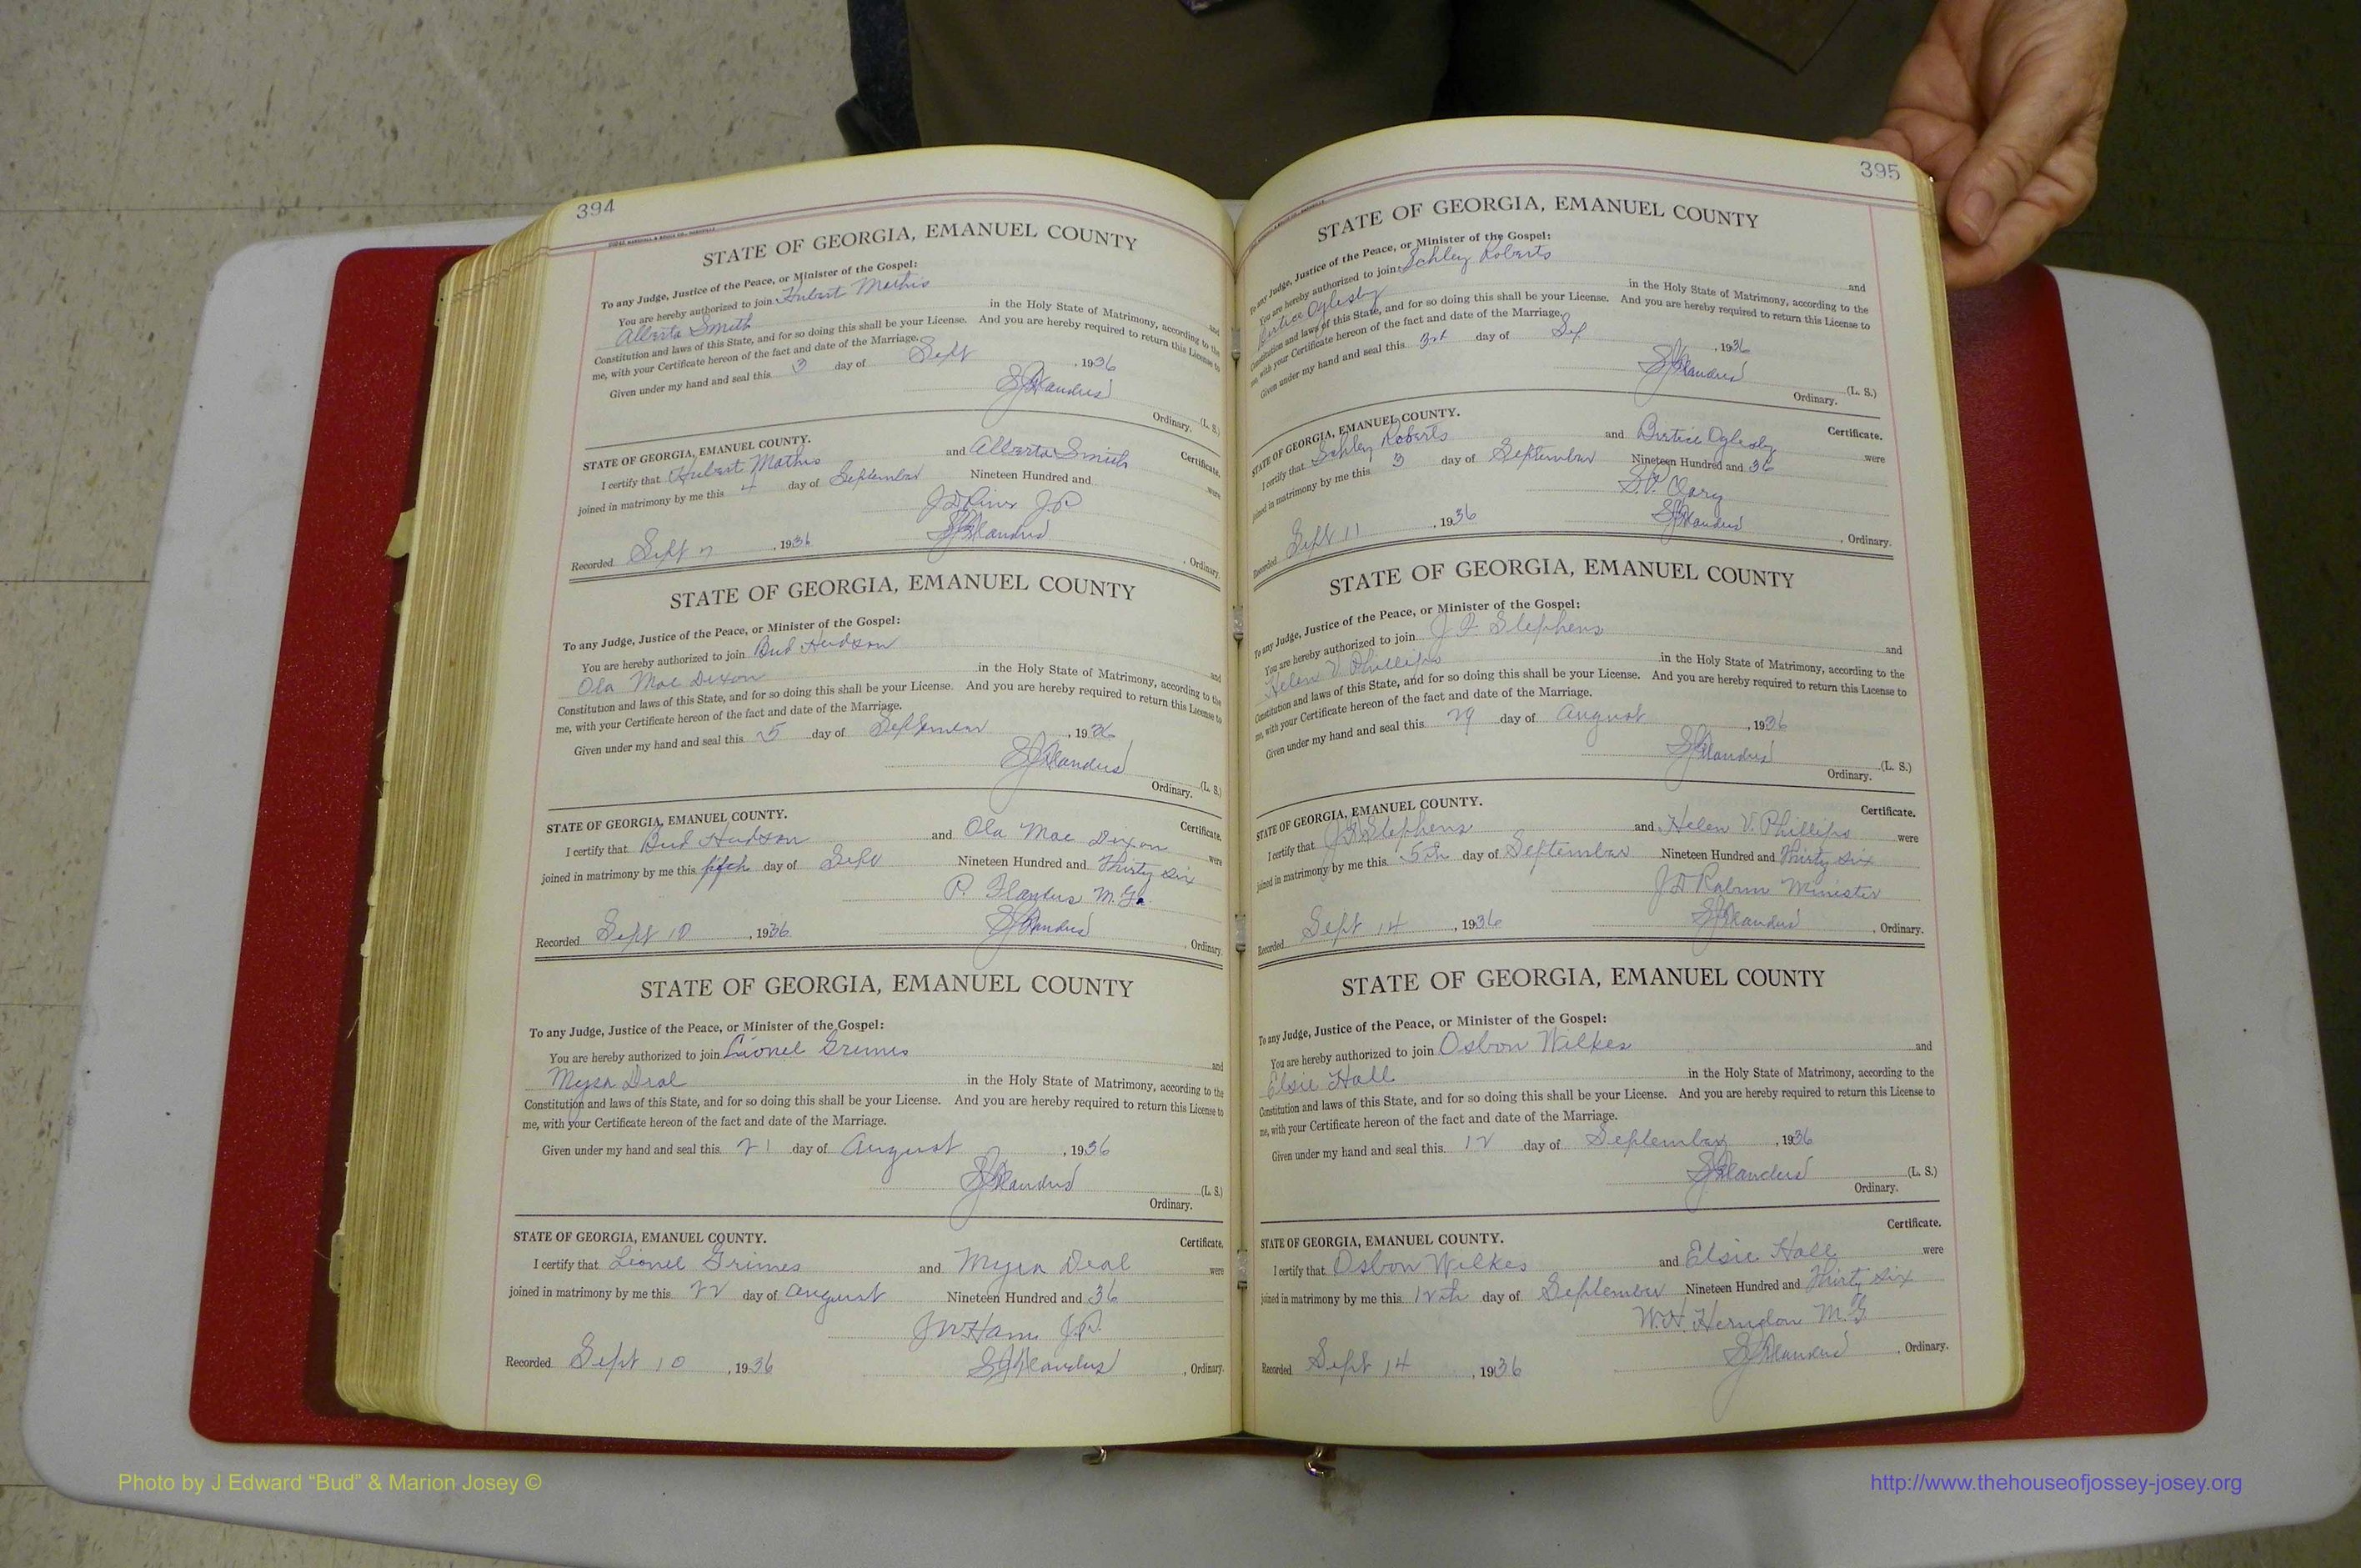 394
STATE OF GEORGIA, EMANUEL COUNTY
To any Judge, Justice of the Peace, or Minister of the Gospel:
You are hereby authorized to join Hubert Mathis and
Alberta Smith in the Holy State of Matrimony, according to the
Constitution and laws of this State, and for so doing this shall be your License. And you are hereby required to return this License to
me, with your Certificate hereon of the fact and date of the Marriage.
Given under my hand and seal this 3 day of Sept, 1936
(L. S.)
Ordinary.
STATE OF GEORGIA, EMANUEL COUNTY.
Certificate.
I certify that Hubert Mathis and Alberta Smith were
joined in matrimony by me this 4 day of September Nineteen Hundred and
J.P.
Recorded Sept 7, 1936, Ordinary.
STATE OF GEORGIA, EMANUEL COUNTY
To any Judge, Justice of the Peace, or Minister of the Gospel:
You are hereby authorized to join Bud Hudson and
Ola Mae Dixon in the Holy State of Matrimony, according to the
Constitution and laws of this State, and for so doing this shall be your License. And you are hereby required to return this License to
me, with your Certificate hereon of the fact and date of the Marriage.
Given under my hand and seal this 5 day of September, 1936
(L. S.)
Ordinary.
STATE OF GEORGIA, EMANUEL COUNTY.
Certificate.
I certify that Bud Hudson and Ola Mae Dixon were
joined in matrimony by me this fifth day of Sept Nineteen Hundred and Thirty six
P. Flanders M.G.
Recorded Sept 10, 1936, Ordinary.
STATE OF GEORGIA, EMANUEL COUNTY
To any Judge, Justice of the Peace, or Minister of the Gospel:
You are hereby authorized to join Lionel Grimes and
Myra Deal in the Holy State of Matrimony, according to the
Constitution and laws of this State, and for so doing this shall be your License. And you are hereby required to return this License to
me, with your Certificate hereon of the fact and date of the Marriage.
Given under my hand and seal this 21 day of August, 1936
(L. S.)
Ordinary.
STATE OF GEORGIA, EMANUEL COUNTY.
Certificate.
I certify that Lionel Grimes and Myra Deal were
joined in matrimony by me this 22 day of August Nineteen Hundred and 36
J.P.
Recorded Sept 10, 1936, Ordinary.
395
STATE OF GEORGIA, EMANUEL COUNTY
To any Judge, Justice of the Peace, or Minister of the Gospel:
You are hereby authorized to join Schley Roberts and
Birtice Oglesby in the Holy State of Matrimony, according to the
Constitution and laws of this State, and for so doing this shall be your License. And you are hereby required to return this License to
me, with your Certificate hereon of the fact and date of the Marriage.
Given under my hand and seal this 3rd day of Sep, 1936
(L. S.)
Ordinary.
STATE OF GEORGIA, EMANUEL COUNTY.
Certificate.
I certify that Schley Roberts and Birtice Oglesby were
joined in matrimony by me this 3 day of September Nineteen Hundred and 36
Recorded Sept 11, 1936, Ordinary.
STATE OF GEORGIA, EMANUEL COUNTY
To any Judge, Justice of the Peace, or Minister of the Gospel:
You are hereby authorized to join Stephens and
Helen V. Phillips in the Holy State of Matrimony, according to the
Constitution and laws of this State, and for so doing this shall be your License. And you are hereby required to return this License to
me, with your Certificate hereon of the fact and date of the Marriage.
Given under my hand and seal this 29 day of August, 1936
(L. S.)
Ordinary.
STATE OF GEORGIA, EMANUEL COUNTY.
Certificate.
I certify that Stephens and Helen V. Phillips were
joined in matrimony by me this 5th day of September Nineteen Hundred and Thirty six
Minister
Recorded Sept 14, 1936, Ordinary.
STATE OF GEORGIA, EMANUEL COUNTY
To any Judge, Justice of the Peace, or Minister of the Gospel:
You are hereby authorized to join Osbon Wilkes and
Elsie Hall in the Holy State of Matrimony, according to the
Constitution and laws of this State, and for so doing this shall be your License. And you are hereby required to return this License to
me, with your Certificate hereon of the fact and date of the Marriage.
Given under my hand and seal this 12 day of September, 1936
(L. S.)
Ordinary.
STATE OF GEORGIA, EMANUEL COUNTY.
Certificate.
I certify that Osbon Wilkes and Elsie Hall were
joined in matrimony by me this 12th day of September Nineteen Hundred and Thirty six
W.H. Herndon M.G.
Recorded Sept 14, 1936, Ordinary.
Photo by J Edward “Bud” & Marion Josey ©
http://www.thehouseofjossey-josey.org